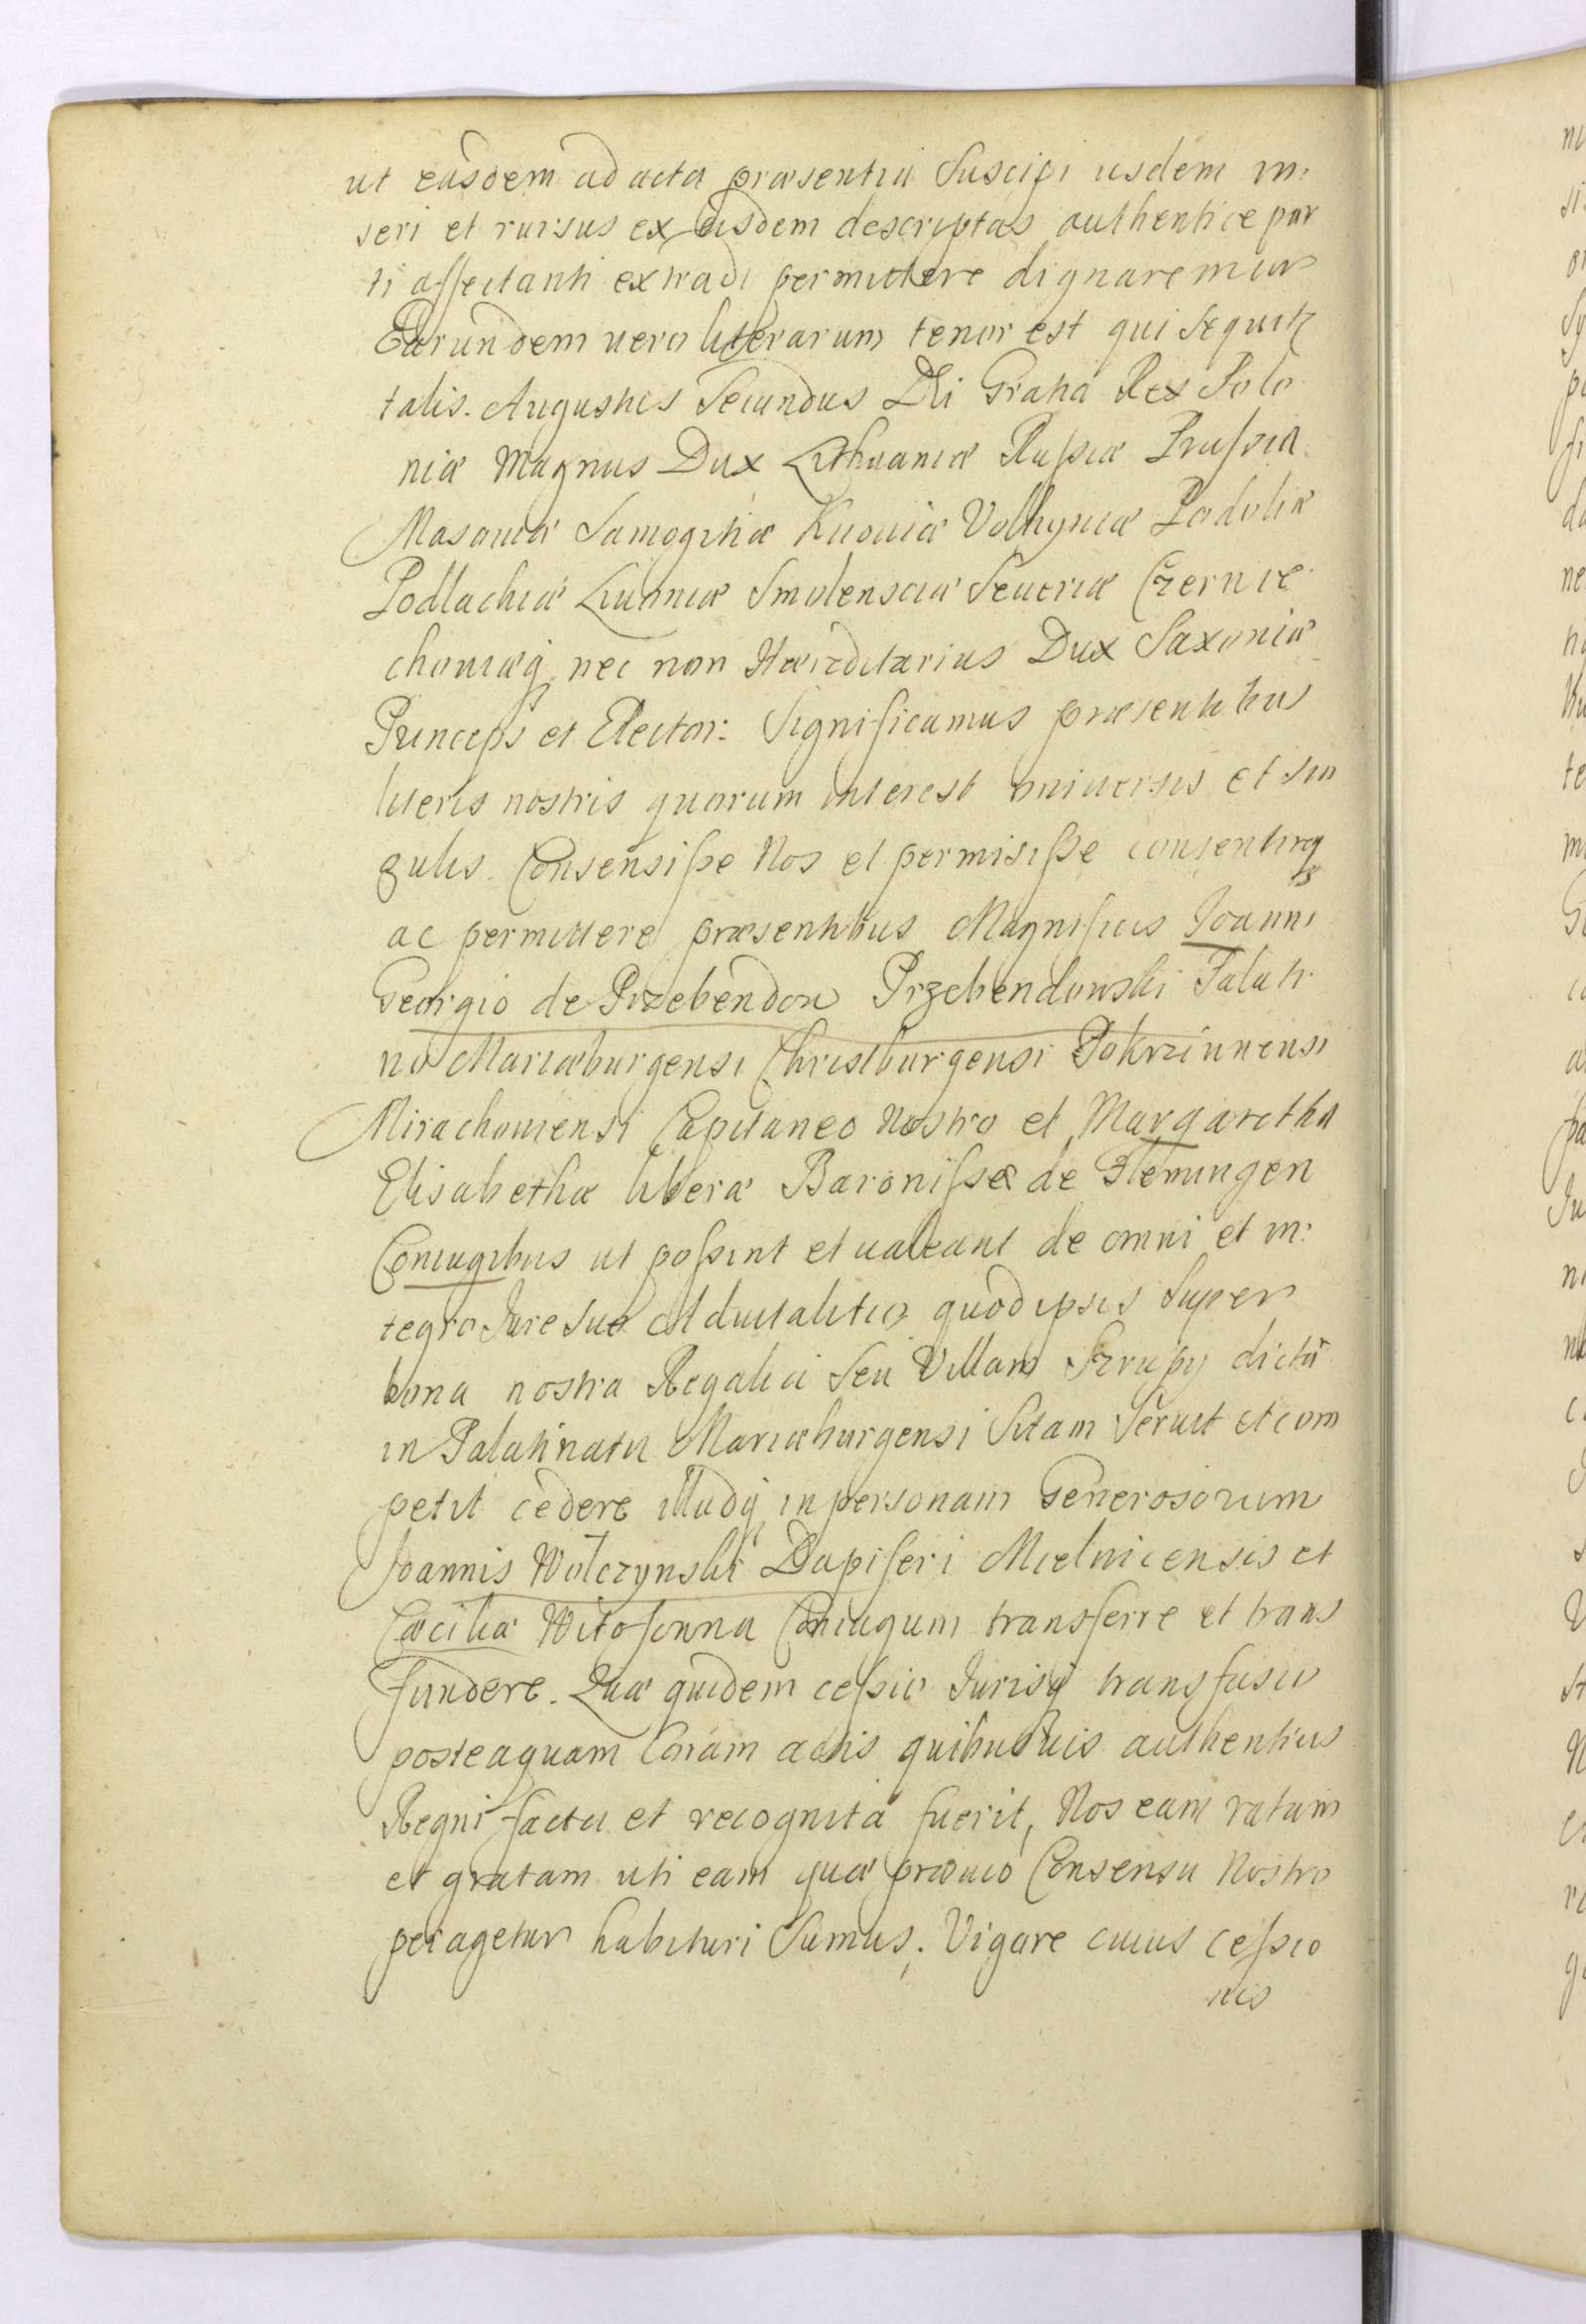 ut easdem ad acta præsentia suscipi iisdem in:
seri et rursus ex eisdem descriptas authentice par
ti affectanti extradi permittere dignaremur
Earundem vero literarum tenor est qui sequitr
talis. Augustus Secundus Dei Gratia Rex Polo
niæ Magnus Dux Lithuaniæ Russiæ Prussiæ
Masoviæ Samogitiæ Kijoviæ Volhyniæ Podoliæ
Podlachiæ Livoniæ Smolensciæ Severiæ Czernie
choviæq nec non Hæreditarius Dux Saxoniæ
Princeps et Elector: Significamus præsentibus
literis nostris quorum interest universis et sin
gulis. Consensisse Nos et permisisse consentireq
ac permittere præsentibus Magnificis Joanni
Georgio de Przebendow Przebendowski Palati
no Mariæburgensi Christburgensi
Mirachoviensi Capitaneo Nostro et Margaretha
Elisabethæ liberæ Baronissæ de Flemingen
Coniugibus ut possint et valeant de omni et in:
tegro Jure suo advitalitio, quod ipsis super
bona nostra Regalia seu Villam Szrupy dictā
in Palatinatu Mariæburgensi sitam servit et com
petit cedere illudq in personam Generosorum
Joannis Wolczynski Dapiferi Mielnicensis et
Cæciliæ Witosowna Coniugum transferre et trans
fundere. Quæ quidem cessio Jurisq transfusio
posteaquam Coram actis quibusvis authenticis
Regni facta et recognita fuerit, Nos eam ratam
et gratam uti eam quæ prævio Consensu Nostro
peragetur habituri sumus. Vigore cuius cessio
nis